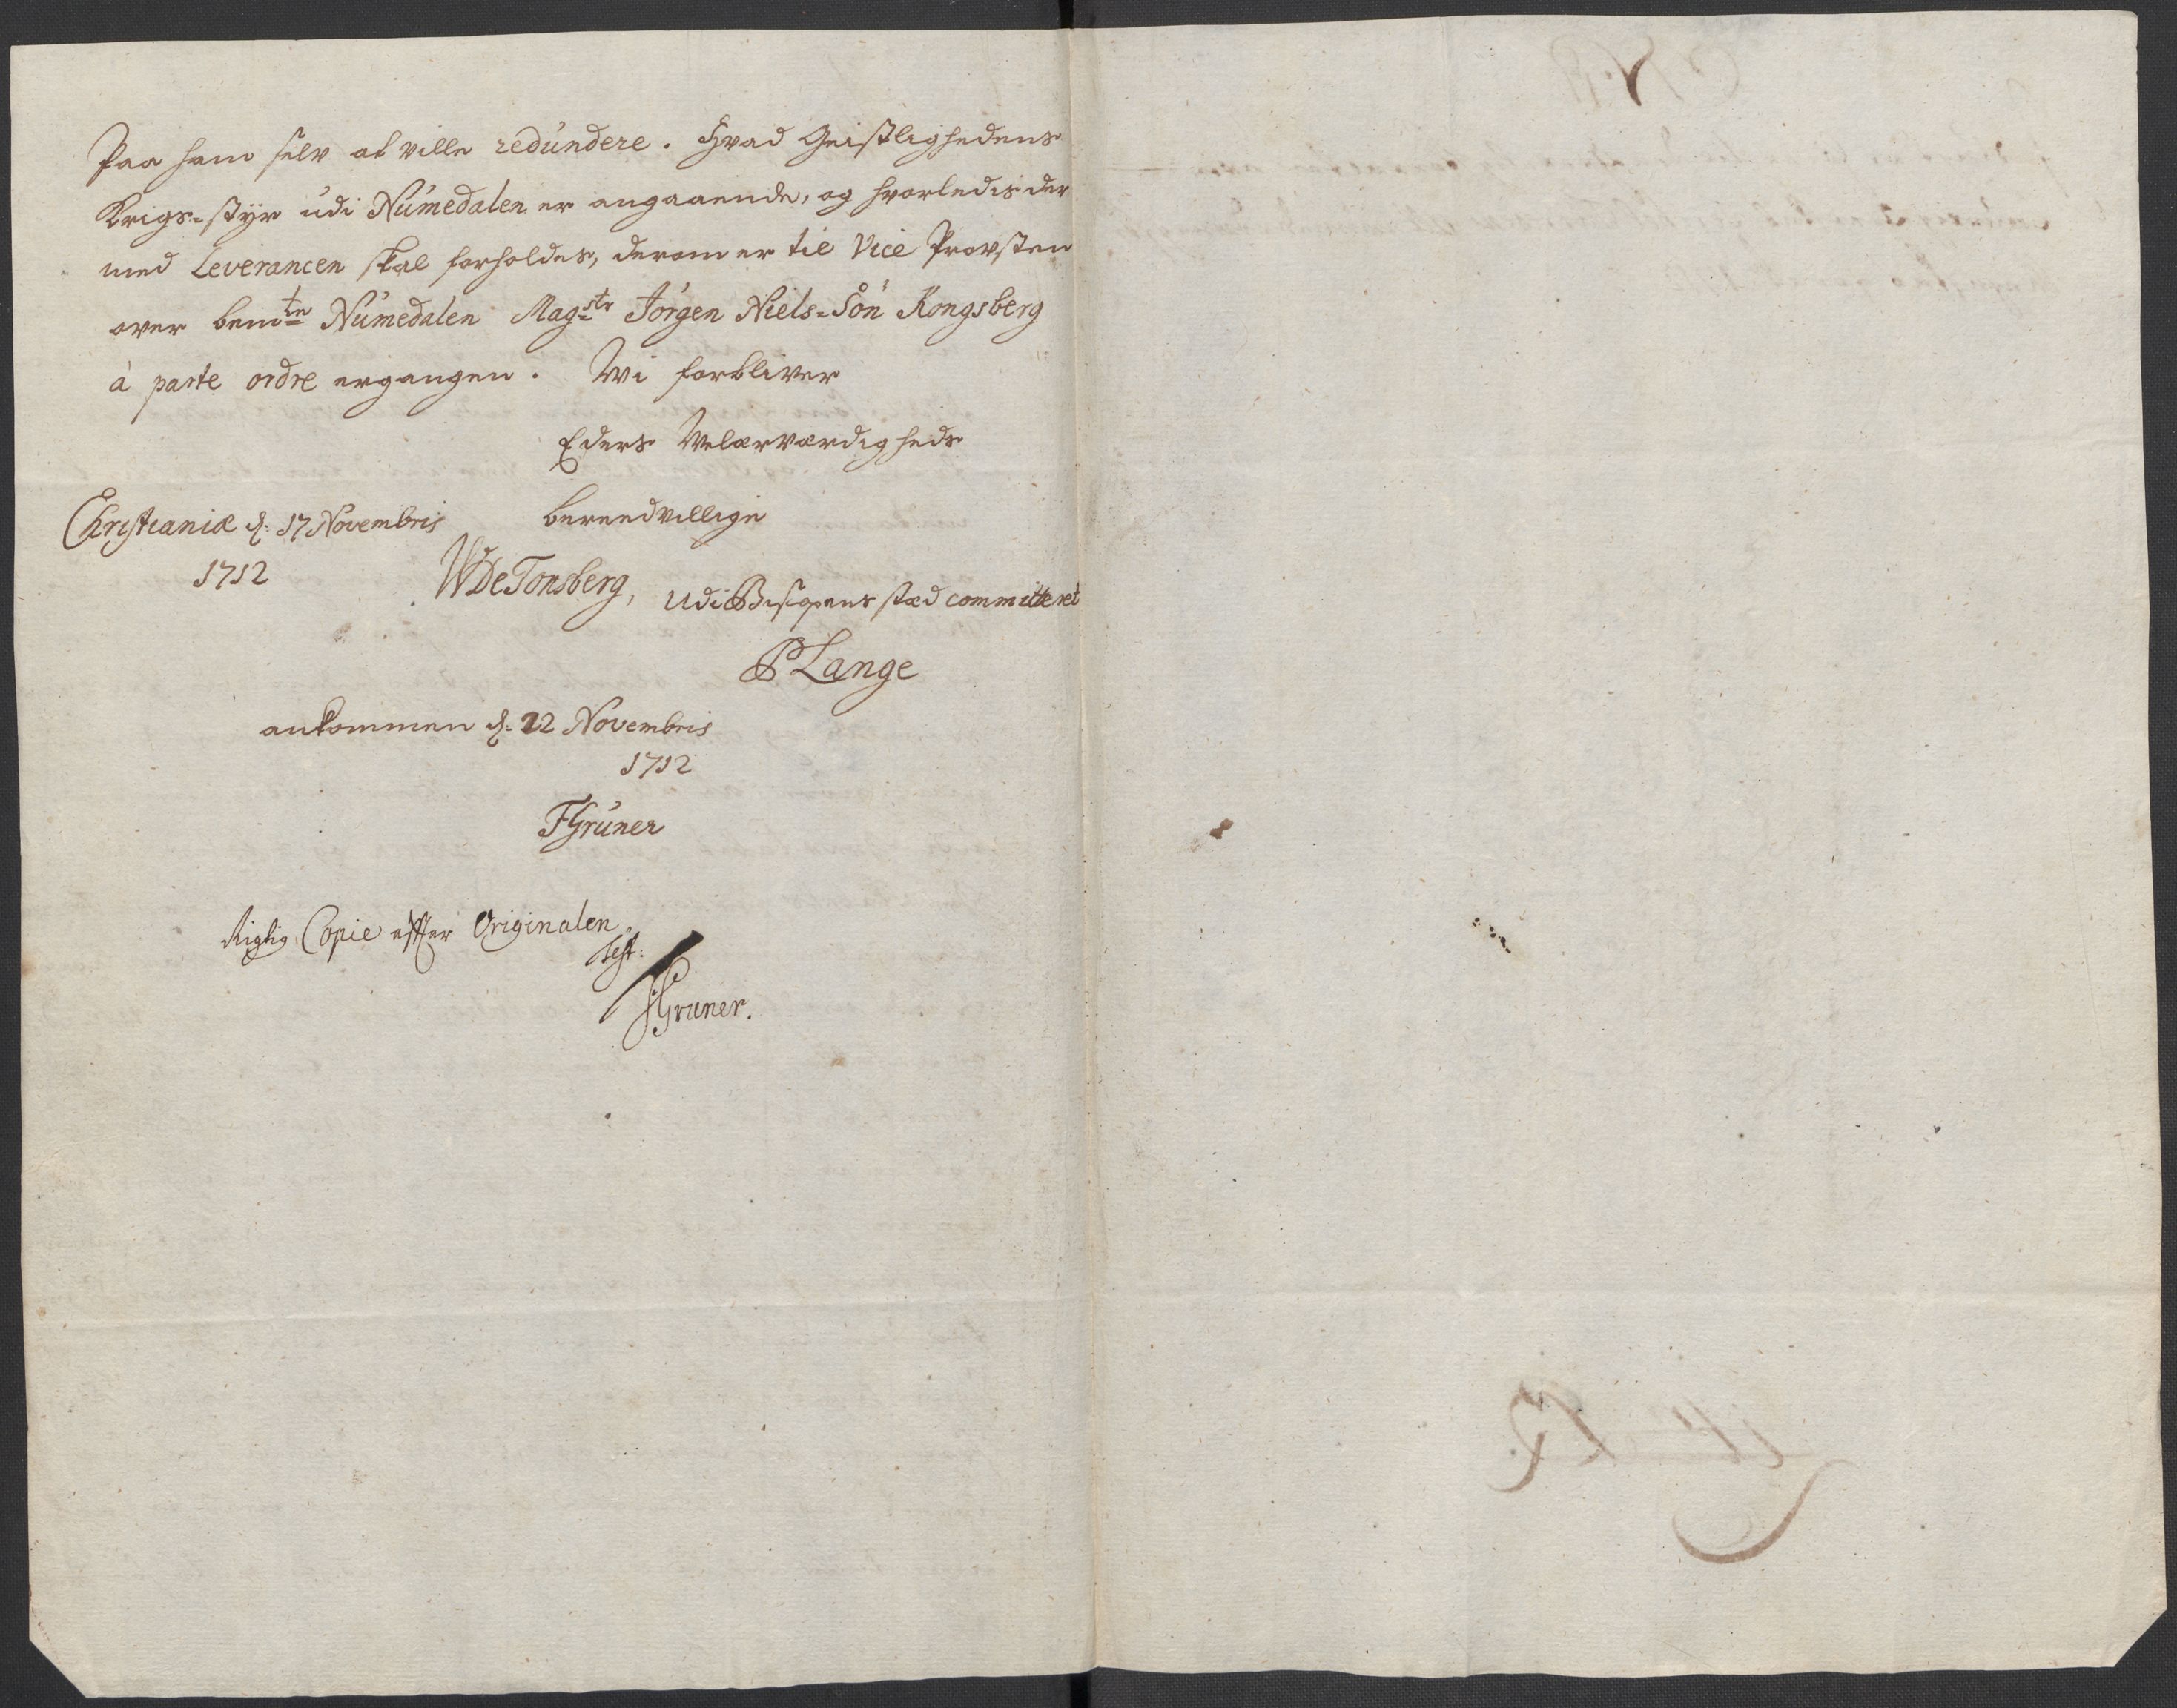 Paa ham selv at ville redundere. Hvad Geistlighedens
Krigs-styr udi Numedalen er angaaende, og hvorledis der
med Leverancen skal forholdes, derom er til Vice Provsten
over bemte Numedalen Magstr Jörgen Niels-Sön Kongsberg
à parte ordre ergangen. Wi forbliver
Eders Velærværdigheds
bereedvillige
Christianiæ d: 17 Novembris
1712
WDeTonsberg, udi Bispens stæd committeret
P Lange
ankommen d: 22 Novembris
1712
FGrüner
Rigtig Copie effter Originalen.
Test:
FGruner.